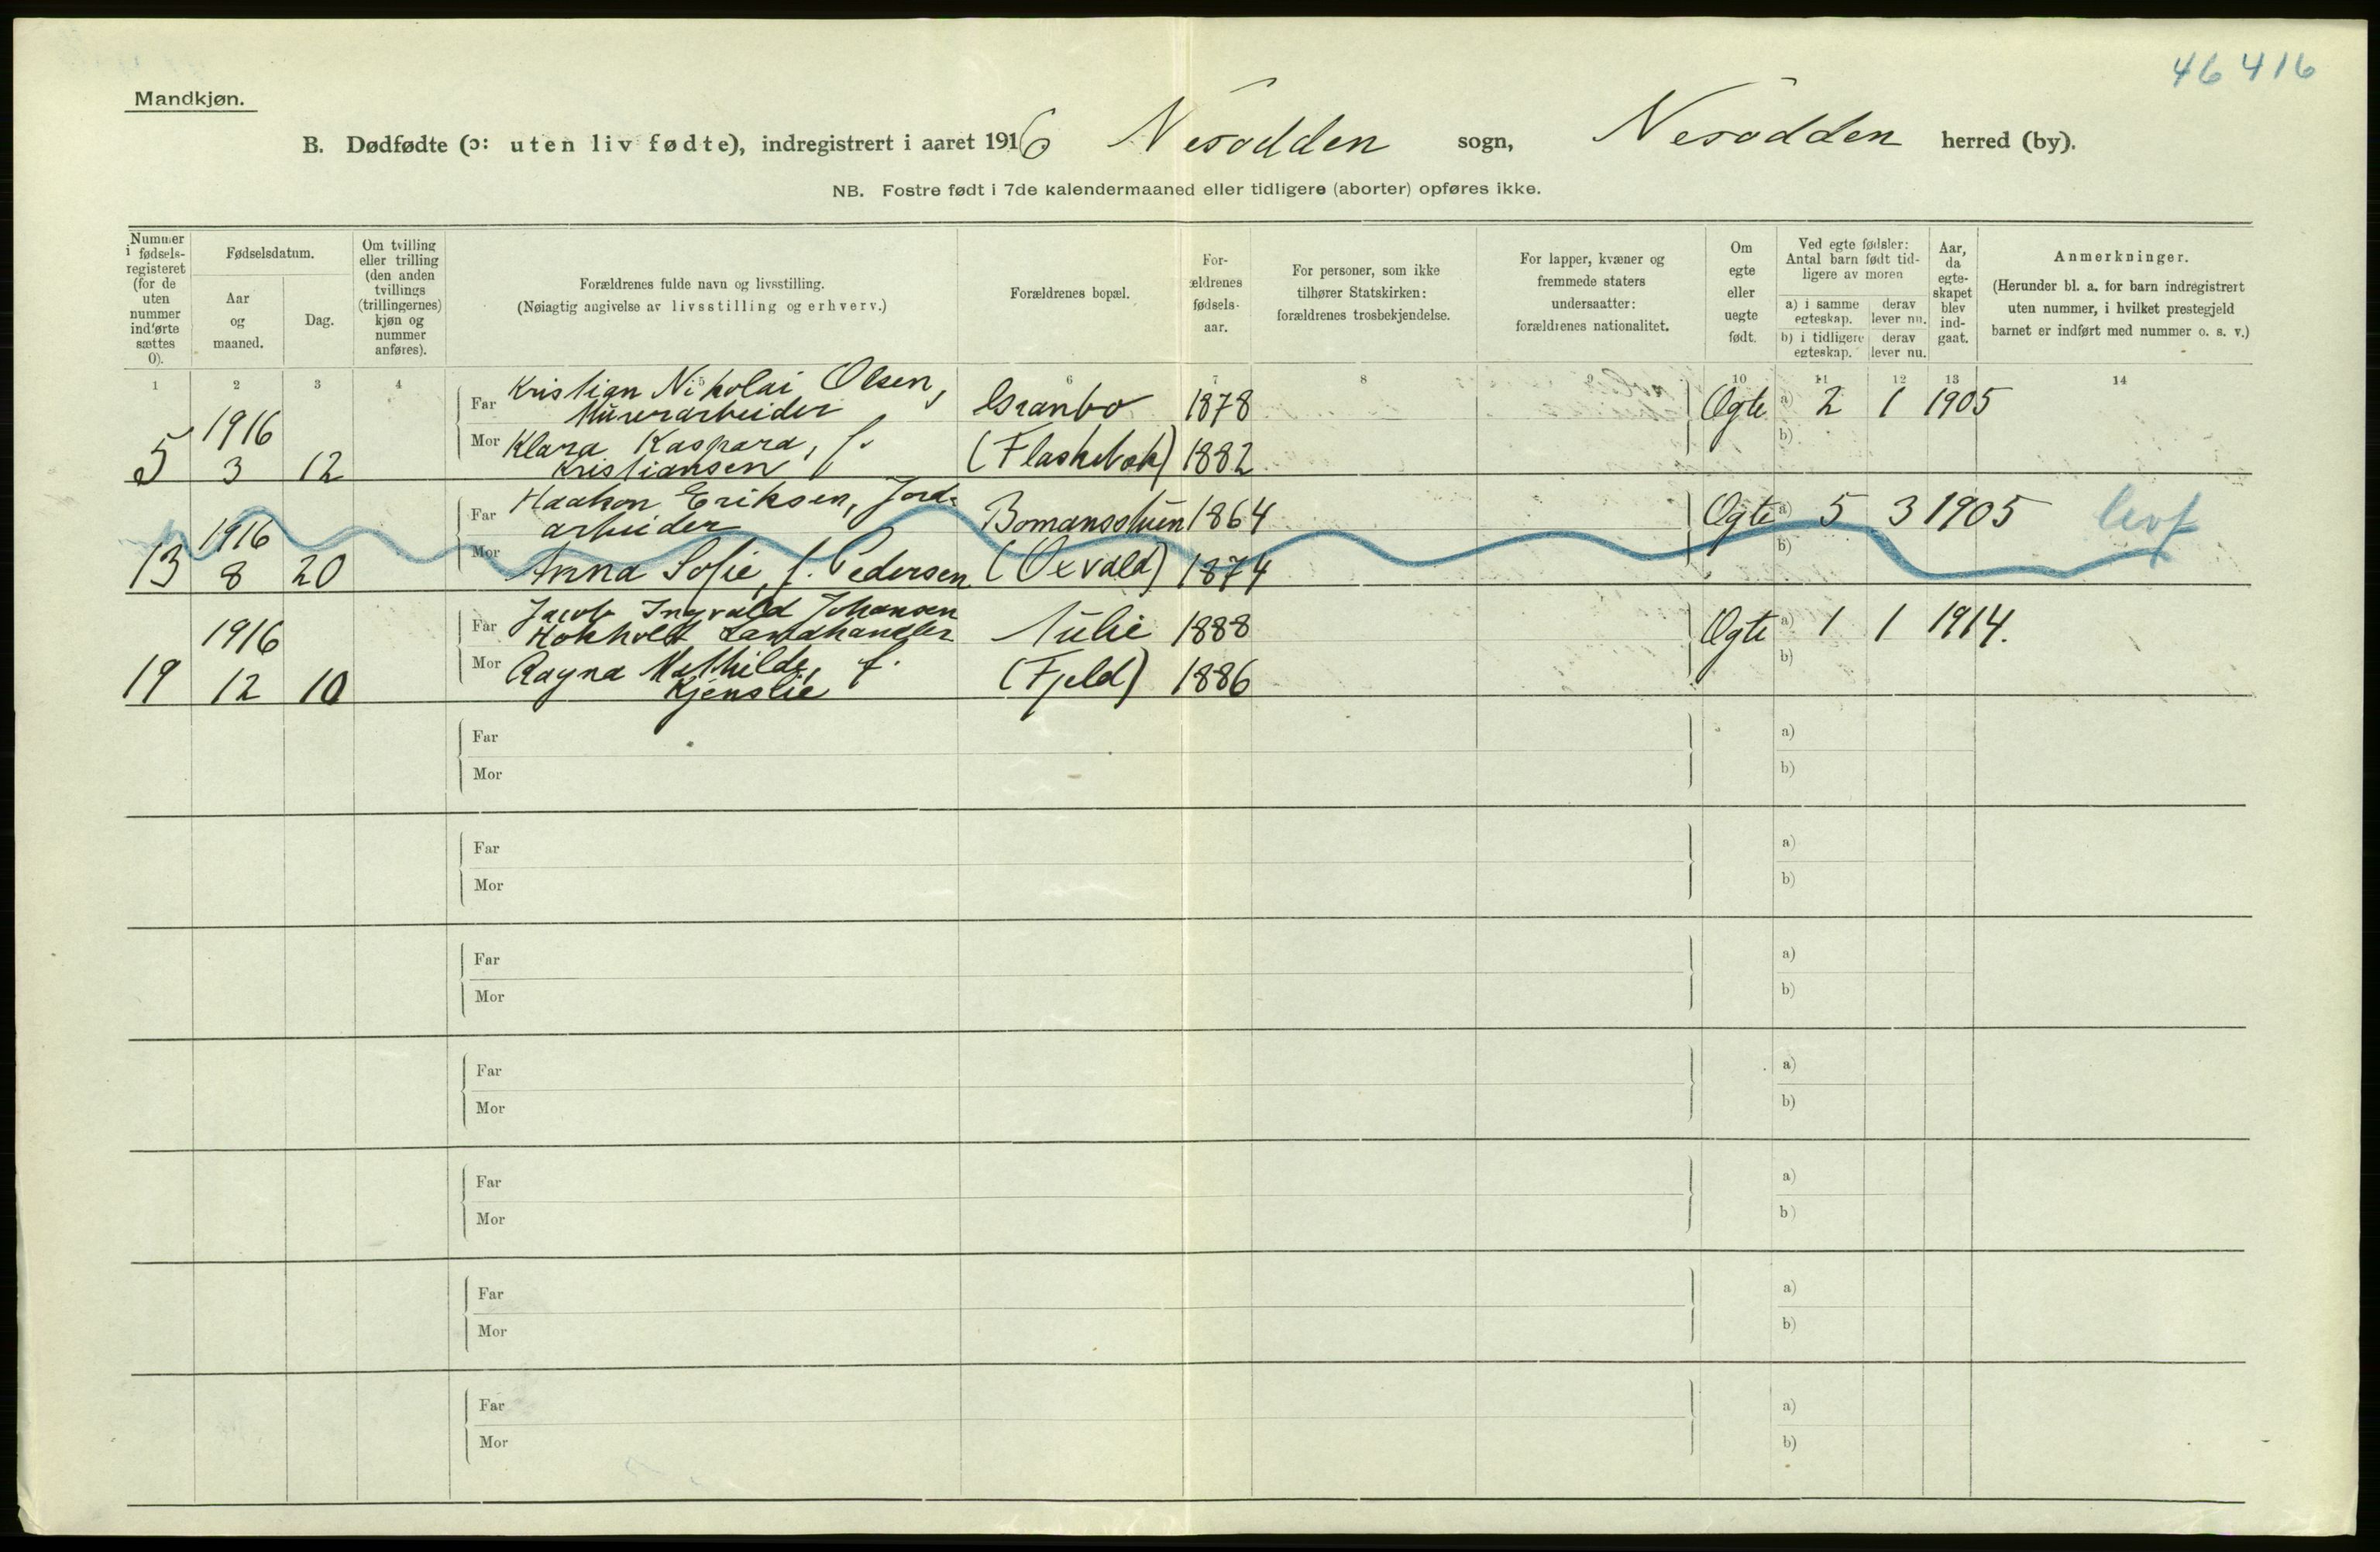 46 416
Mandkjøn.
B. Dødfødte (ɔ: uten liv fødte), indregistrert i aaret 1916 Nesodden sogn, Nesodden herred (by).
NB. Fostre født i 7de kalendermaaned eller tidligere (aborter) opføres ikke.
Nummer
i fødsels-
registeret
(for de
uten
nummer
indførte
sættes
0).
Fødselsdatum.
Aar
og
maaned.
Dag.
Om tvilling
eller trilling
(den anden
tvillings
(trillingernes)
kjøn og
nummer
anføres).
Forældrenes fulde navn og livsstilling.
(Nøiagtig angivelse av livsstilling og erhverv.)
Forældrenes bopæl.
For-
ældrenes
fødsels-
aar.
For personer, som ikke
tilhører Statskirken:
forældrenes trosbekjendelse.
For lapper, kvæner og
fremmede staters
undersaatter:
forældrenes nationalitet.
Om
egte
eller
uegte
født.
Ved egte fødsler:
Antal barn født tid-
ligere av moren
a) i samme
egteskap.
derav
lever nu.
b) i tidligere
egteskap.
derav
lever nu.
Aar,
da
egte-
skapet
blev
ind-
gaat.
Anmerkninger.
(Herunder bl. a. for barn indregistrert
uten nummer, i hvilket prestegjeld
barnet er indført med nummer o. s. v.)
1 2 3 4 5 6 7 8 9 10 11 12 13 14
Far Kristian Nikolai Olsen, Granbo 1878 Ogte a) 2 1 1905
Murerarbeider
1916
Mor Klara Kaspara, f. (Flaskebæk) 1882 b)
5 3 12 Kristiansen
Far Haakon Eriksen, Jord- Bomansstuen 1864 Ogte a) 5 3 1905
arbeider
1916
Mor Anna Sofie, f. Pedersen (Oxvald) 1874 b)
13 8 20
Far Jacob Ingvald Johansen 1888 Ogte a) 1 1 1914.
Landhandler
1916
Mor Ragna Mathilde, f. (Fjeld) 1886 b)
19 12 10 Kjenslie
Far a)
Mor b)
Far a)
Mor b)
Far a)
Mor b)
Far a)
Mor b)
Far a)
Mor b)
Far a)
Mor b)
Far a)
Mor b)